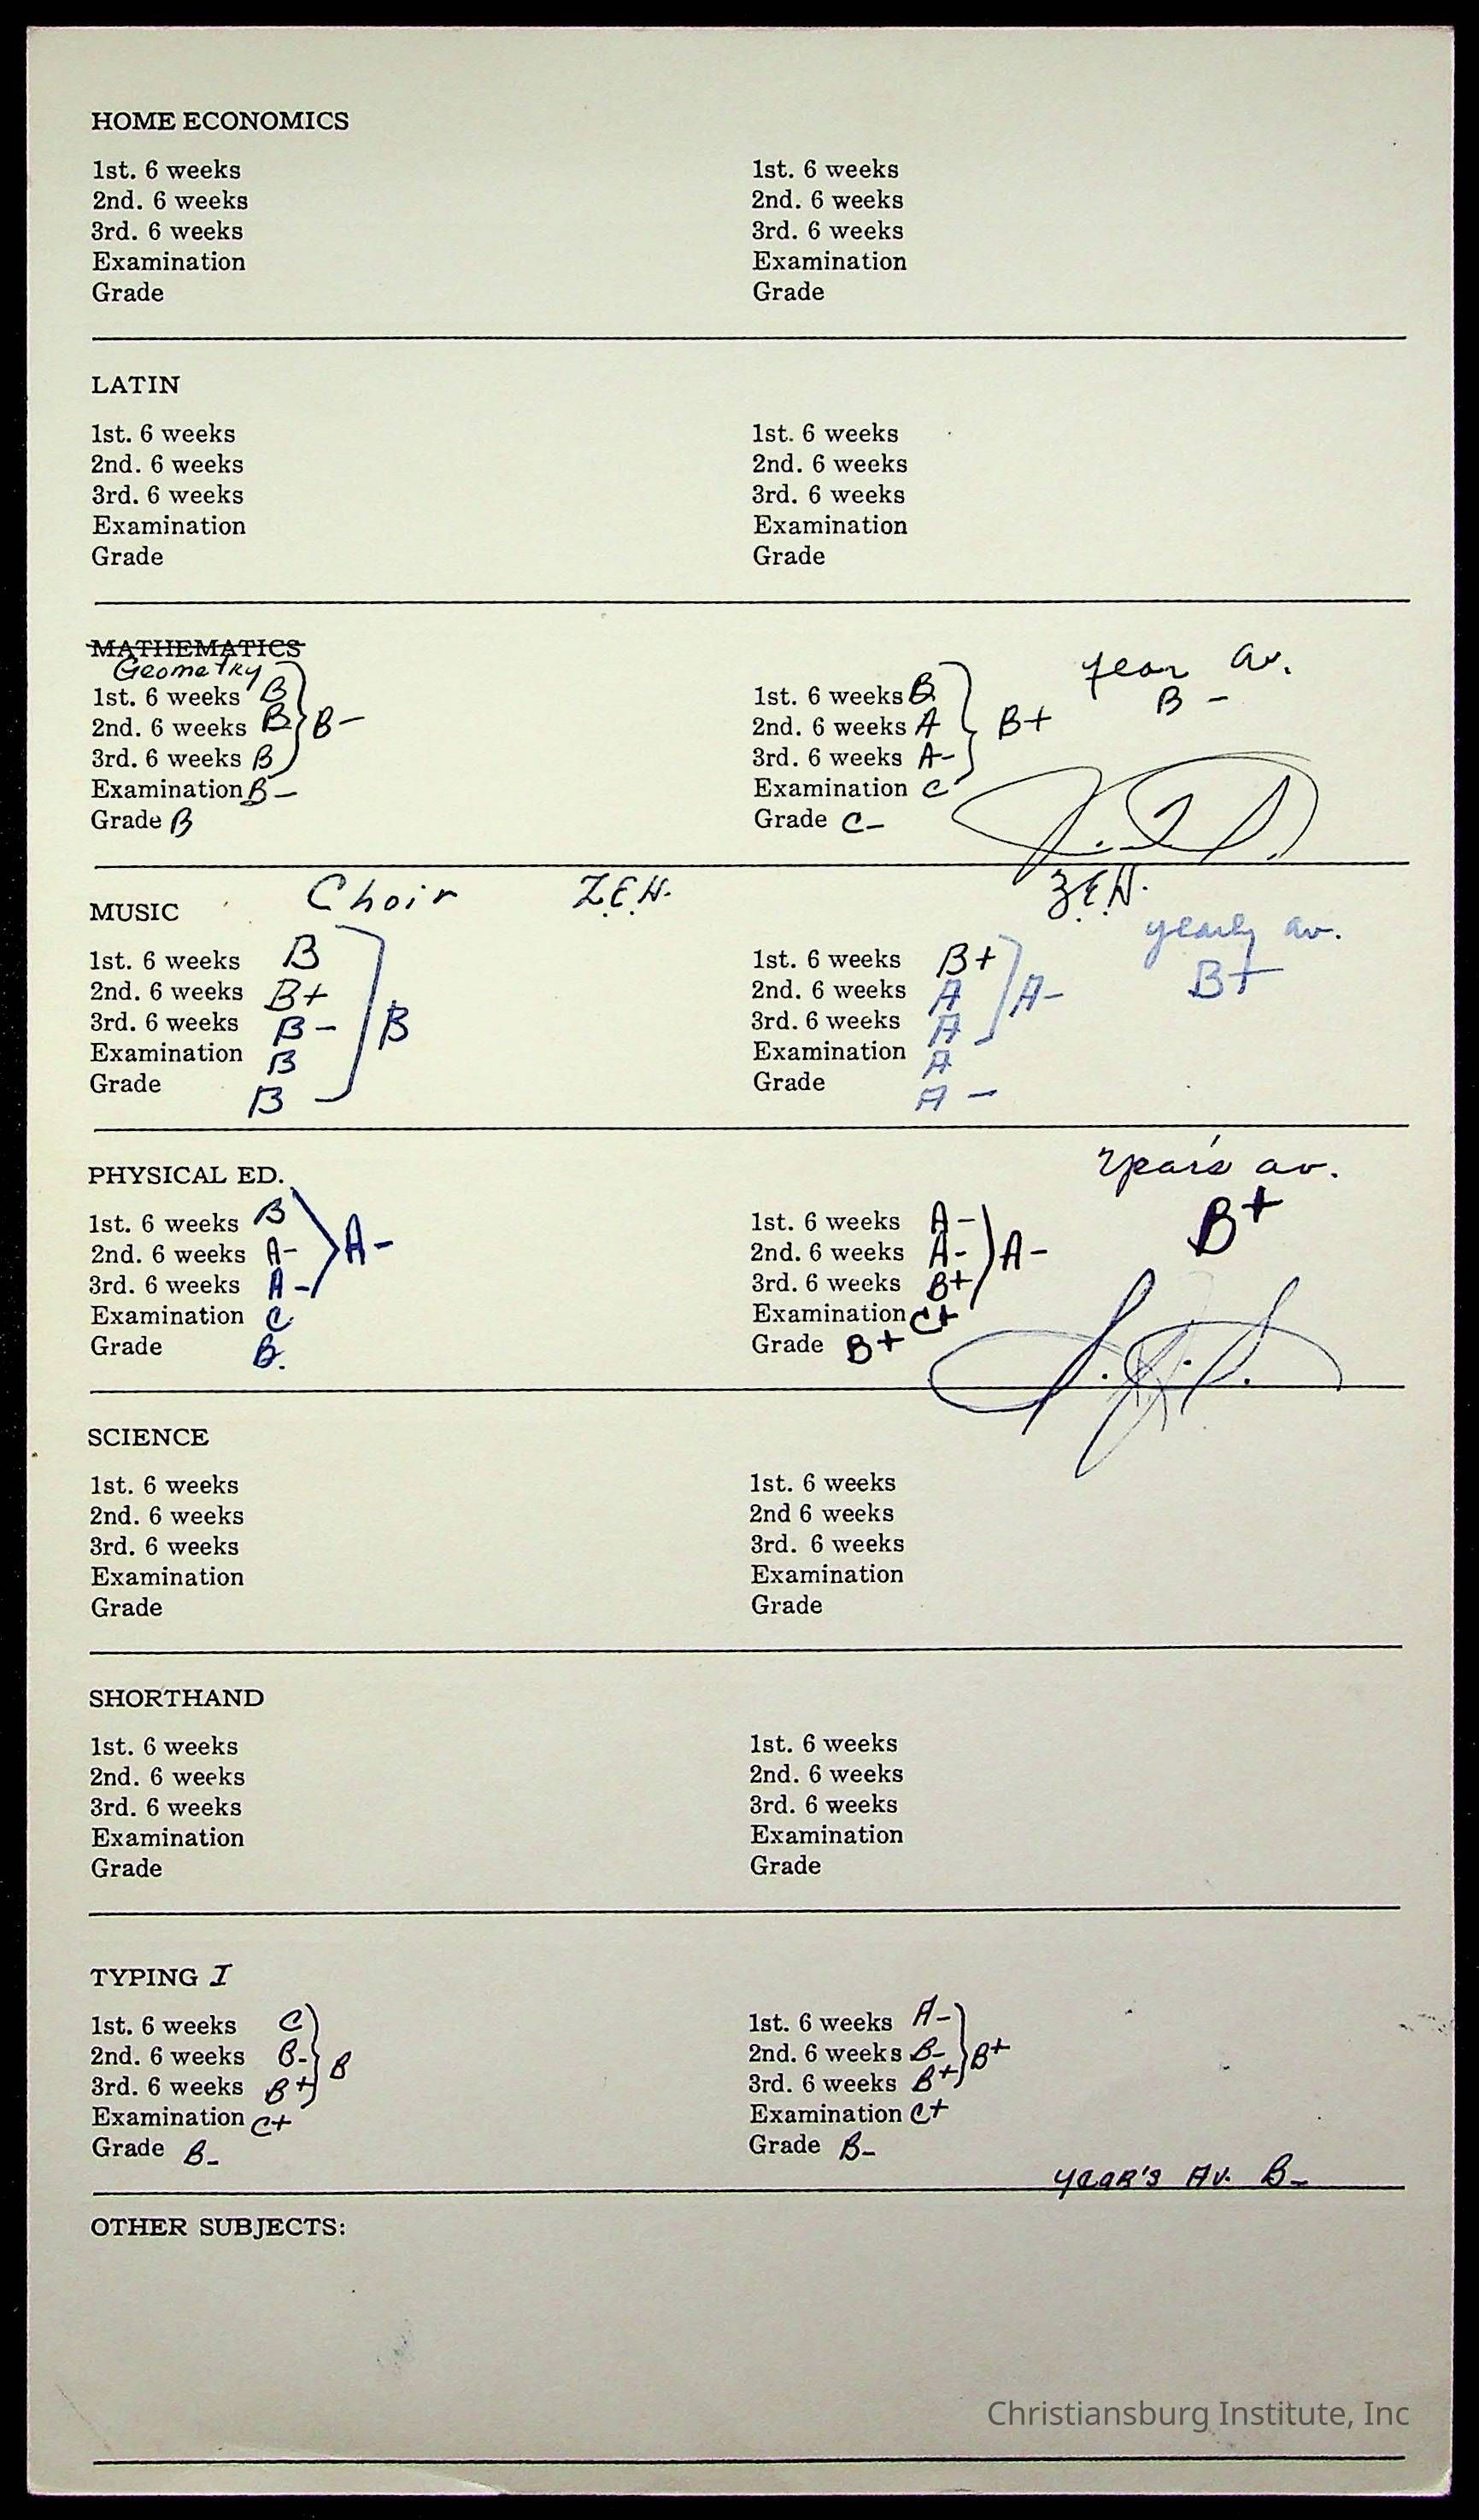 HOME ECONOMICS
1st. 6 weeks
2nd. 6 weeks
3rd. 6 weeks
Examination
Grade
1st. 6 weeks
2nd. 6 weeks
3rd. 6 weeks
Examination
Grade
LATIN
1st. 6 weeks
2nd. 6 weeks
3rd. 6 weeks
Examination
Grade
1st. 6 weeks
2nd. 6 weeks
3rd. 6 weeks
Examination
Grade
MATHEMATICS
Geometry
1st. 6 weeks B
2nd. 6 weeks B B-
3rd. 6 weeks B
Examination B-
Grade B
1st. 6 weeks B
2nd. 6 weeks A B+
3rd. 6 weeks A-
Examination C
Grade C-
year av.
B -
MUSIC Choir Z.E.H.
1st. 6 weeks B
2nd. 6 weeks B+
3rd. 6 weeks B- B
Examination B
Grade B
Z.E.H.
1st. 6 weeks B+
2nd. 6 weeks A A-
3rd. 6 weeks A
Examination A
Grade A-
yearly av.
B+
PHYSICAL ED.
1st. 6 weeks B
2nd. 6 weeks A- A-
3rd. 6 weeks A-
Examination C
Grade B.
1st. 6 weeks A-
2nd. 6 weeks A- A-
3rd. 6 weeks B+
Examination C+
Grade B+
year's av.
B+
SCIENCE
1st. 6 weeks
2nd. 6 weeks
3rd. 6 weeks
Examination
Grade
1st. 6 weeks
2nd 6 weeks
3rd. 6 weeks
Examination
Grade
SHORTHAND
1st. 6 weeks
2nd. 6 weeks
3rd. 6 weeks
Examination
Grade
1st. 6 weeks
2nd. 6 weeks
3rd. 6 weeks
Examination
Grade
TYPING I
1st. 6 weeks C
2nd. 6 weeks B- B
3rd. 6 weeks B+
Examination C+
Grade B-
1st. 6 weeks A-
2nd. 6 weeks B- B+
3rd. 6 weeks B+
Examination C+
Grade B-
year's Av. B-
OTHER SUBJECTS:
Christiansburg Institute, Inc